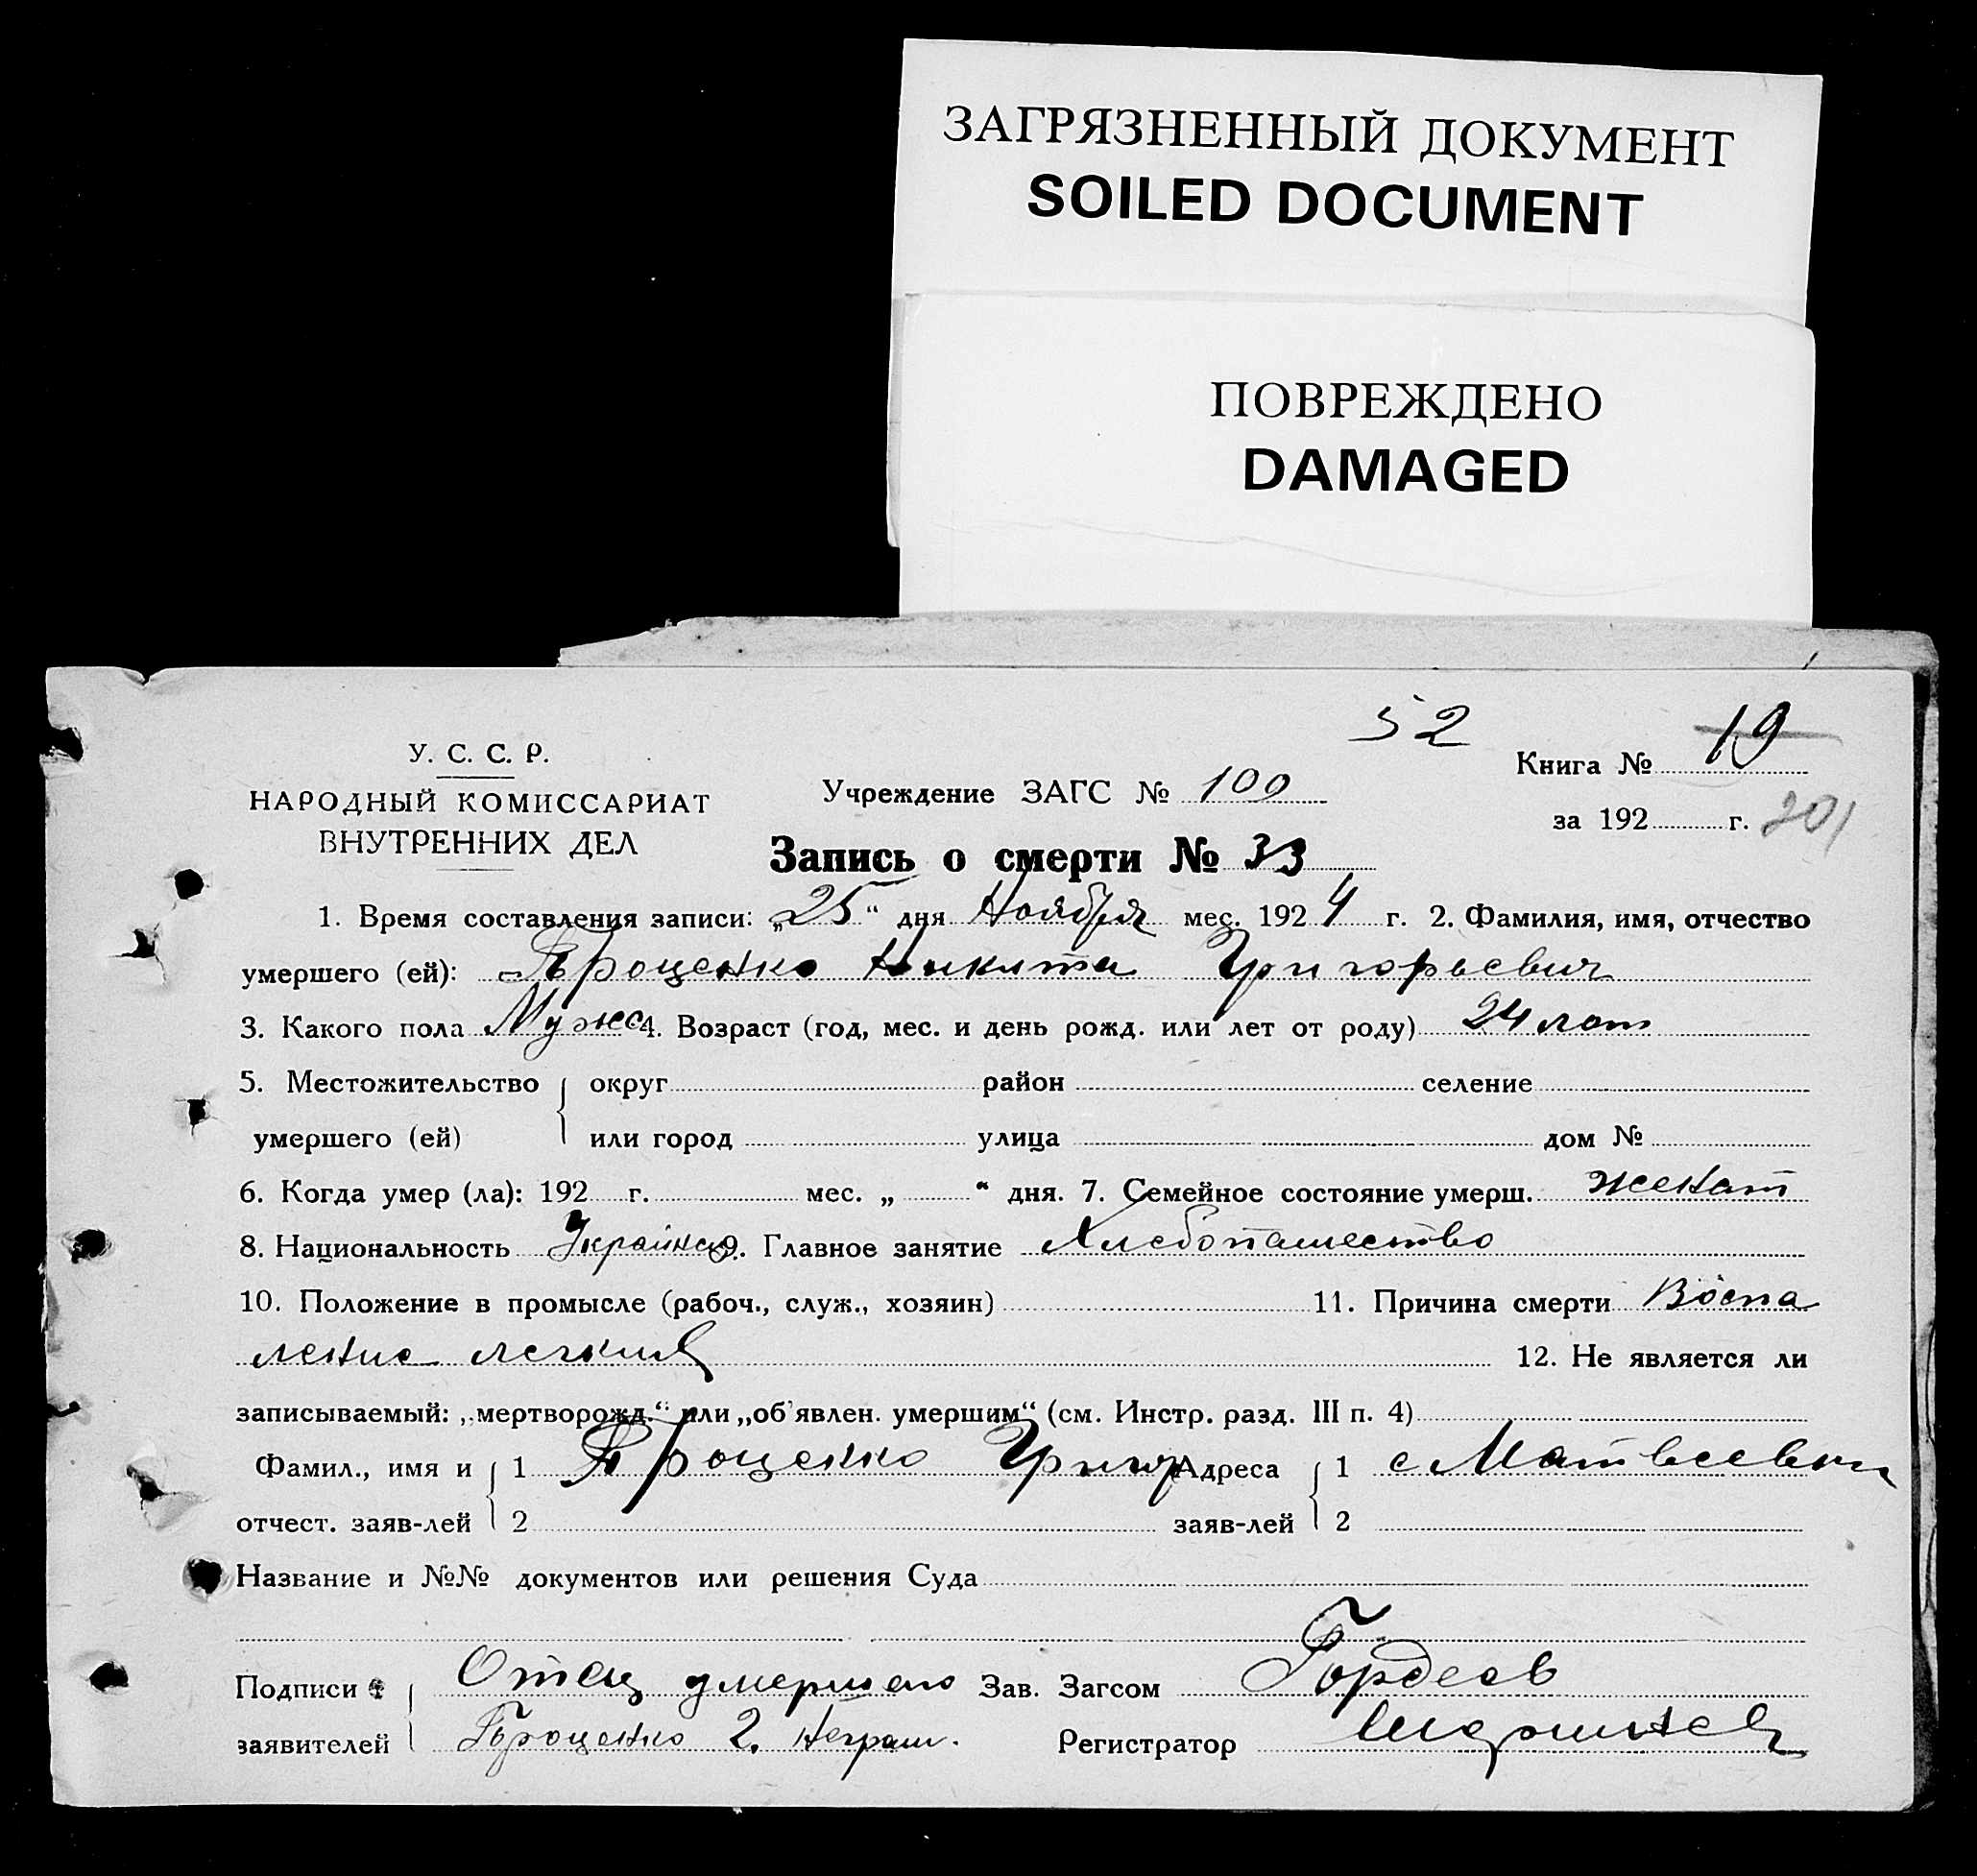 ЗАГРЯЗНЕННЫЙ ДОКУМЕНТ
SOILED DOCUMENT
ПОВРЕЖДЕНО
DAMAGED
52
У. С. С. Р.
НАРОДНЫЙ КОМИССАРИАТ
ВНУТРЕННИХ ДЕЛ
Учреждение ЗАГС № 100
Книга № 19
за 192 г. 201
Запись о смерти № 33
1. Время составления записи: „25“ дня Ноября мес. 1924 г. 2. Фамилия, имя, отчество
умершего (ей): Проценко Никита Григорьевич
3. Какого пола Мужс 4. Возраст (год, мес. и день рожд. или лет от роду) 24 лет
5. Местожительство округ район селение
умершего (ей) или город улица дом №
6. Когда умер (ла): 192 г. мес. „ “ дня. 7. Семейное состояние умерш. женат
8. Национальность Украинец 9. Главное занятие Хлебопашество
10. Положение в промысле (рабоч., служ., хозяин) 11. Причина смерти Воспа
ление легких 12. Не является ли
записываемый: „мертворожд.“ или „об'явлен. умершим“ (см. Инстр. разд. III п. 4)
Фамил., имя и 1 Проценко Григор Адреса 1 с Матвеевки
отчест. заяв-лей 2 заяв-лей 2
Название и №№ документов или решения Суда
Подписи Отец умершего Зав. Загсом Гордеев
заявителей Проценко Г. Неграм. Регистратор